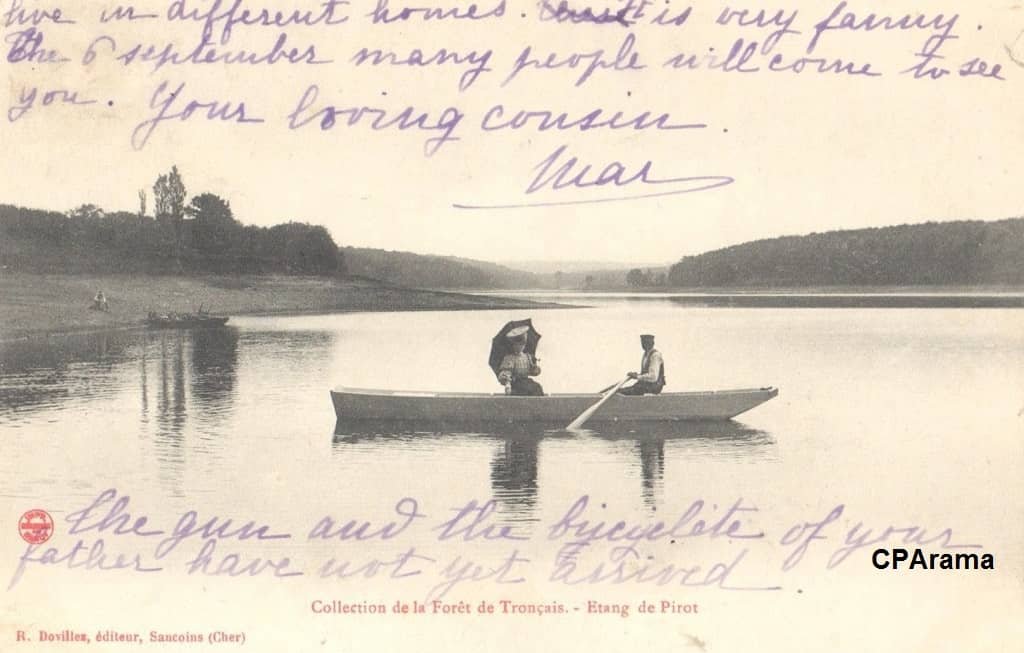 live in different homes. is very fanny.
The 6 september many people will come to see
you. Your loving consin.
Mar
The gun and the bicyclete of your
father have not yet arrived
CPArama
Collection de la Forêt de Tronçais. - Etang de Pirot
R. Dovillez, éditeur, Sancoins (Cher)